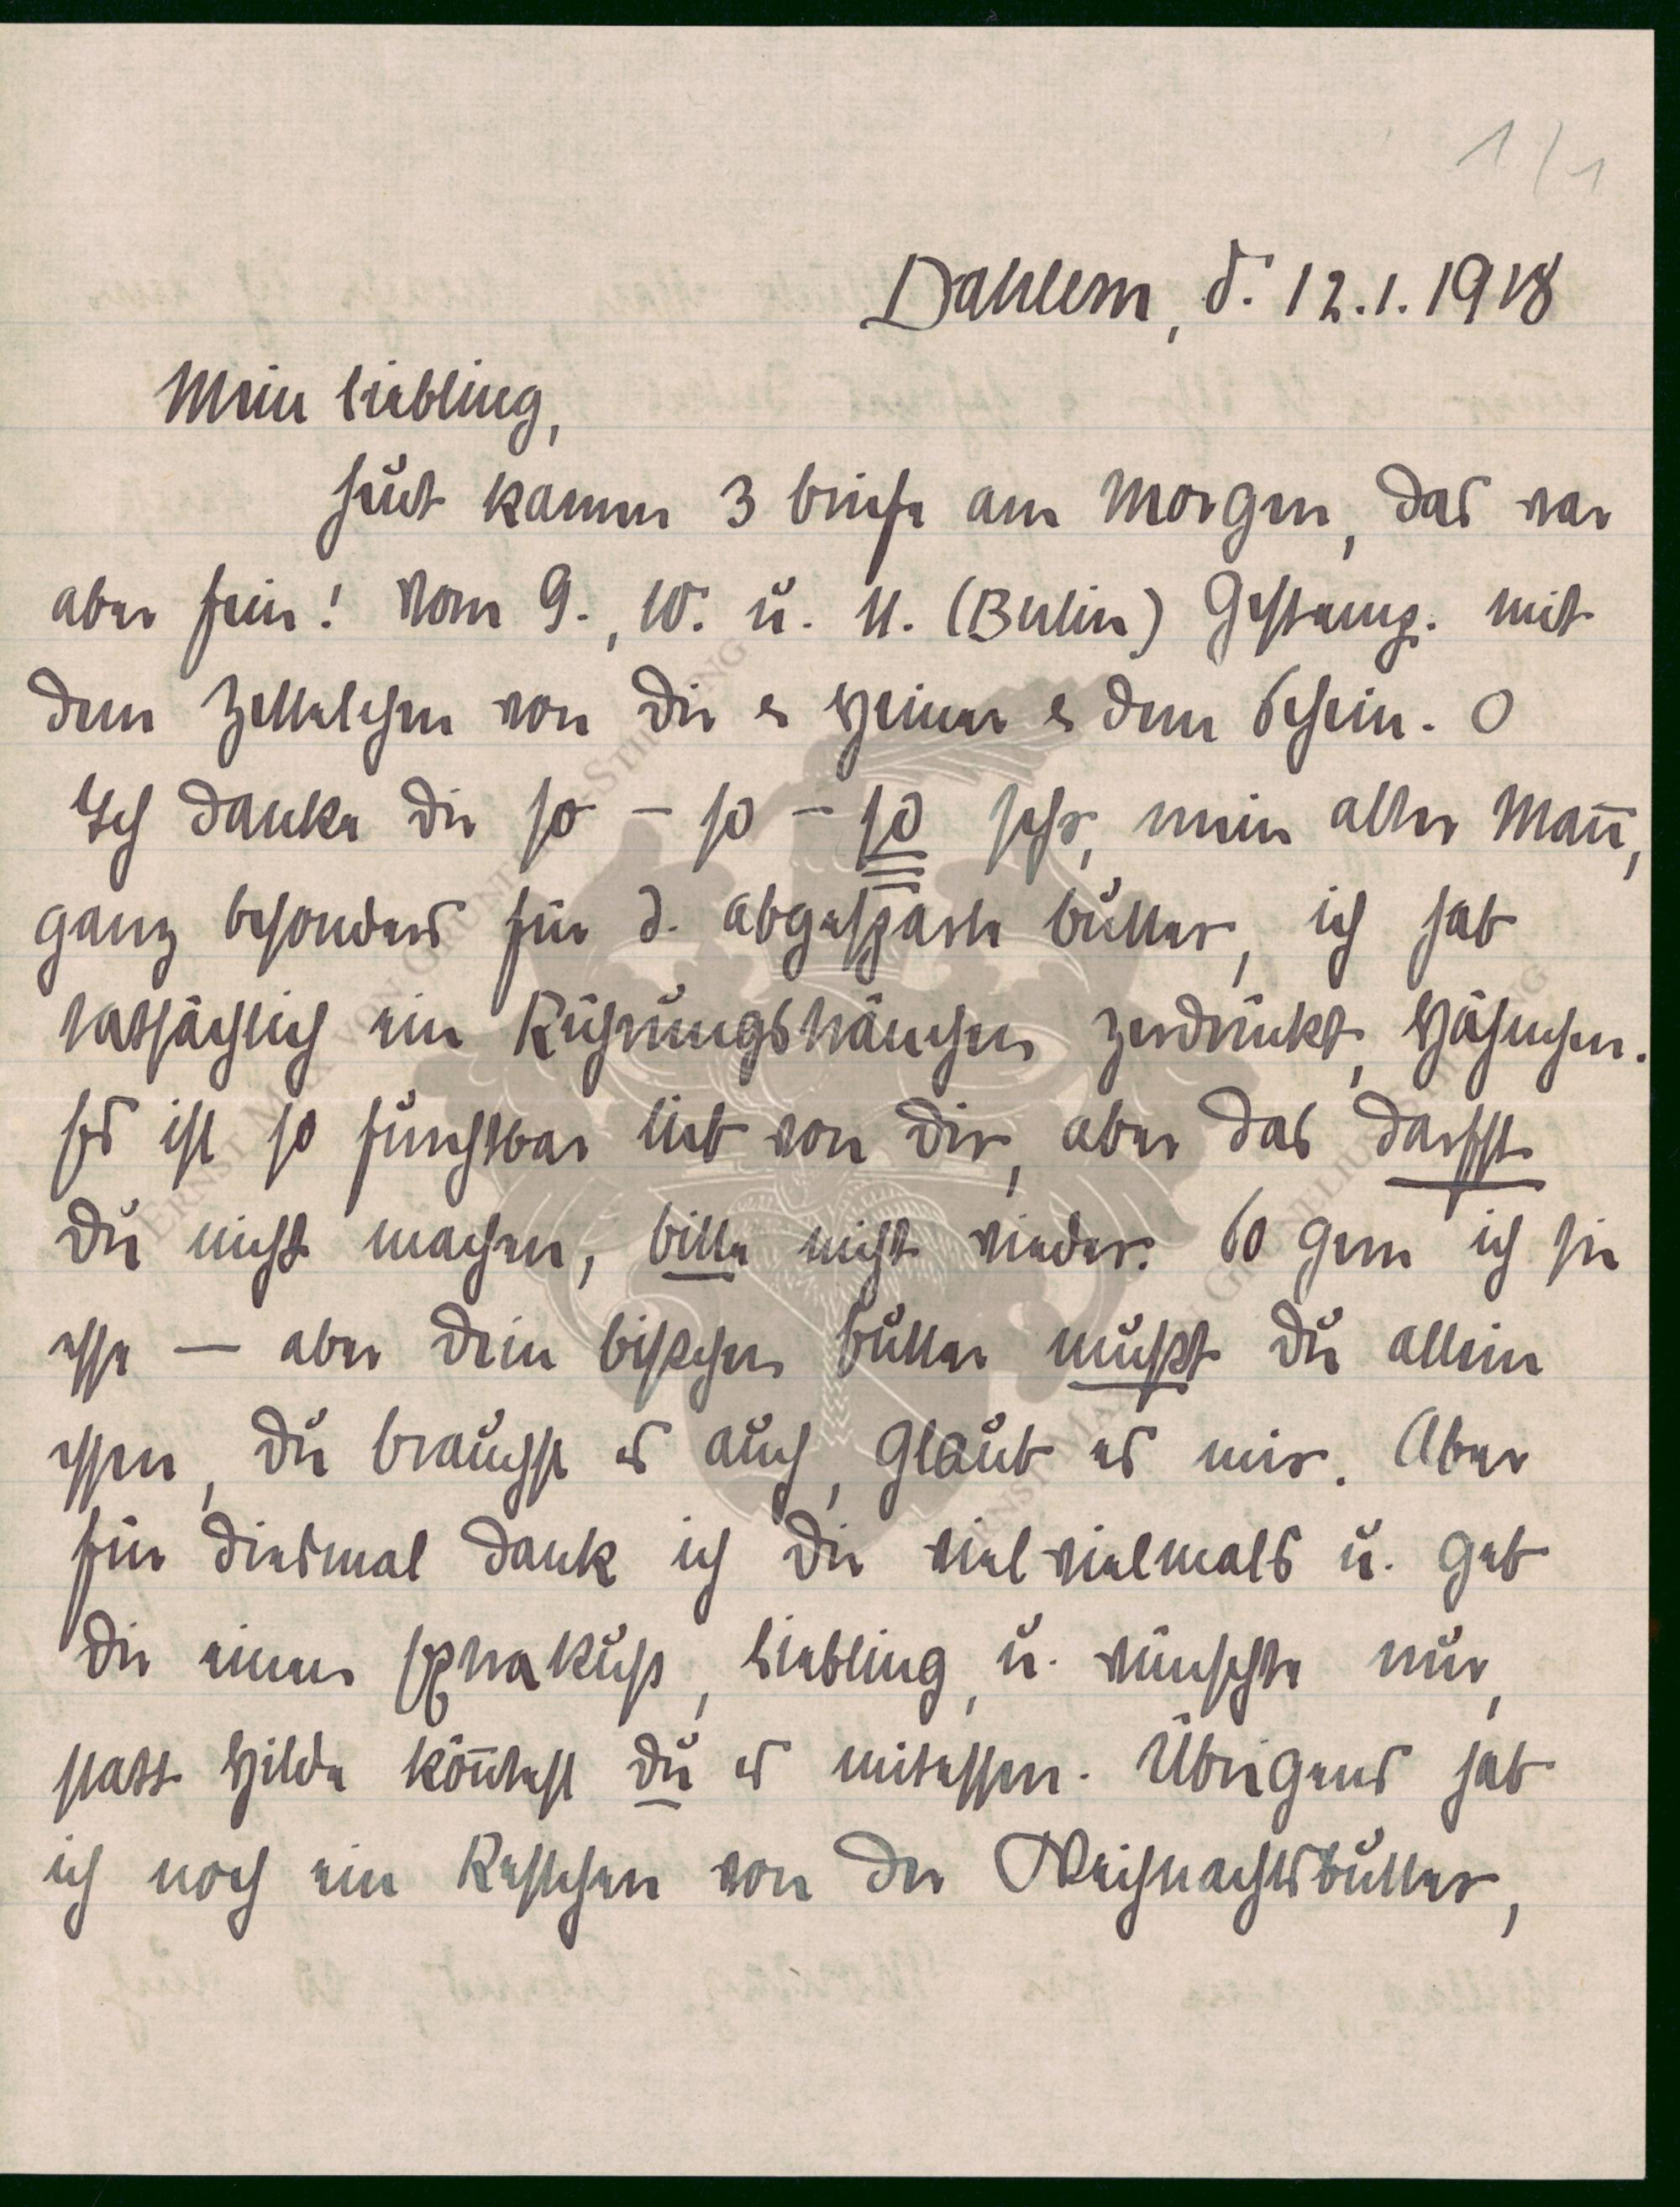 1/1
Dahlem, d. 12.1.1918
Mein Liebling,
heut kamen 3 Briefe am Morgen, das war
aber fein! Vom 9., 10. u. 11. (Berlin) mit
dem Zettelchen von Dir & Heiner & dem Schein. O
Ich danke Dir so – so – so sehr, mein alter Mañ,
ganz besonders für d. abgesparte Butter, ich hab
tatsächlich ein Rührungstränchen zerdrückt, Hähnchen.
Es ist so furchtbar lieb von Dir, aber das darfst
Du nicht machen, bitte nicht wieder. So gern ich sie
esse — aber Dein bischen Butter mußt Du allein
essen, Du brauchst es auch, glaub es mir. Aber
für diesmal dank ich Dir viel vielmals u. geb
Dir einen extra Kuß, Liebling, u. wünschte nur,
statt Hilde köñtest Du es mitessen. Übrigens hab
ich noch ein Restchen von der Weihnachtsbutter,
ERNST MAX VON GRUNELIUS STIFTUNG
ERNST MAX VON GRUNELIUS STIFTUNG